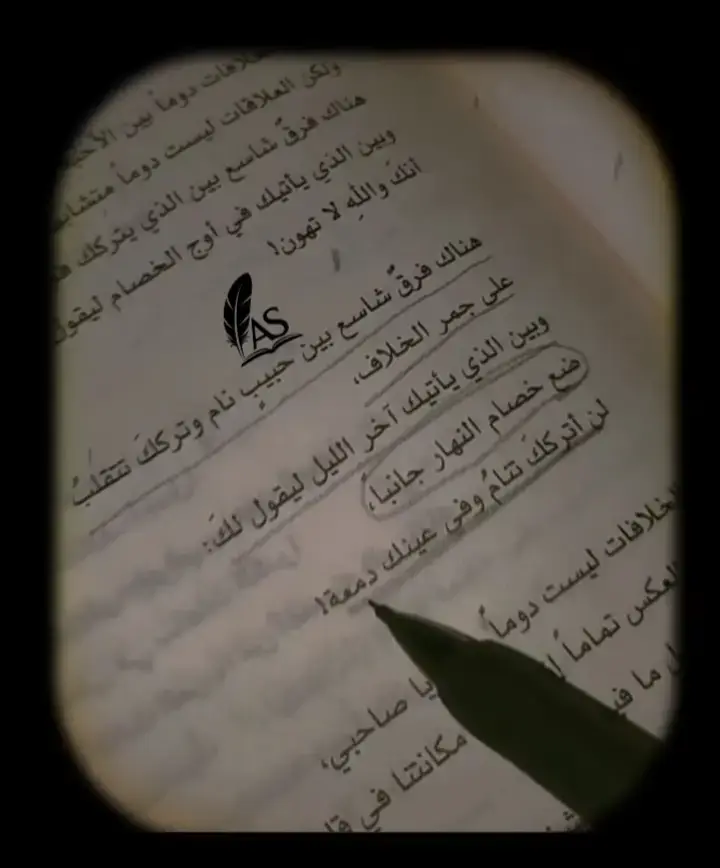 دوماً بين
ولكن العلاقات ليست دوماً
هناك فرقٌ شاسع بين الذي يتركك
وبين الذي يأتيك في أوج الخصام ليقول
أنكَ واللهِ لا تهون!
هناك فرقٌ شاسع بين حبيبٍ نام وترككَ تتقلبُ
على جمر الخلاف،
وبين الذي يأتيك آخر الليل ليقول لكَ:
ضع خصام النهار جانباً،
لن أترككَ تنامُ وفي عينك دمعة!
AS
الخلافات ليست دوماً
العكس تماماً
ما
يا صاحبي،
مكانتنا في